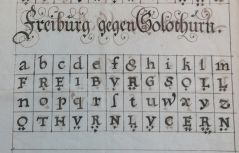 Freiburg gegen Solothurn.
a b c d e f g h i k l m
F R E I B V R G S O L L
n o p q r ſ t u w x y z
O T H V R N L V C E R N